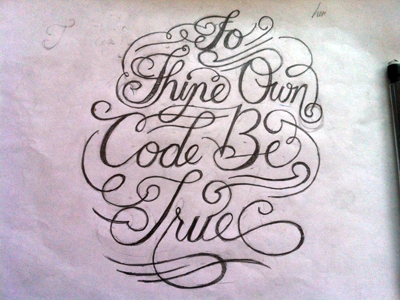 To
Thine Own
Code Be
True